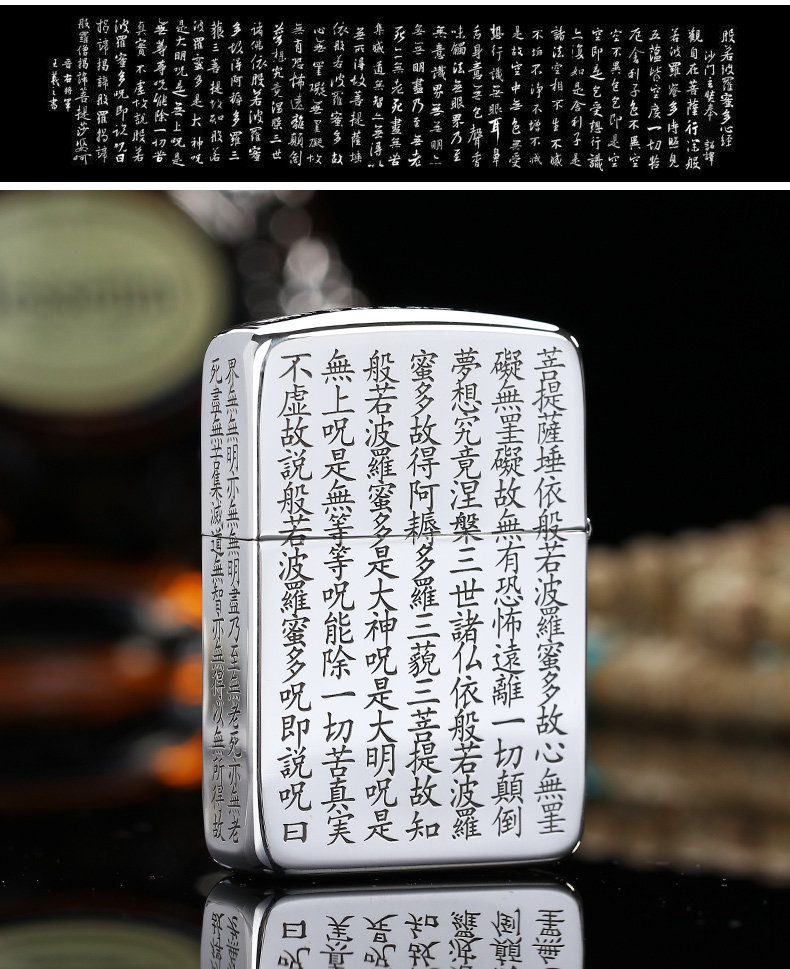 般若波羅蜜多心経
沙门玄奘奉 詔譯
觀自在菩薩行深般
若波羅蜜多時照見
五蘊皆空度一切苦
厄舍利子色不異空
空不異色色即是空
空即是色受想行識
亦復如是舍利子是
諸法空相不生不滅
不垢不淨不增不減
是故空中無色無受
想行識無眼耳鼻
舌身意無色聲香
味觸法無眼界乃至
無意識界無無明亦
無無明盡乃至無老
死亦無老死盡無苦
集滅道無智亦無得以
無所得故菩提薩埵
依般若波羅蜜多故
心無罣礙無罣礙故
無有恐怖遠離顛倒
夢想究竟涅槃三世
諸佛依般若波羅蜜
多故得阿耨多羅三
藐三菩提故知般若
波羅蜜多是大神呪
是大明呪是無上呪是
無等等呪能除一切苦
真實不虛故說般若
波羅蜜多呪即說呪曰
揭諦揭諦般羅揭諦
般羅僧揭諦菩提莎婆呵
晉右將軍
王羲之書
菩提薩埵依般若波羅蜜多故心無罣
礙無罣礙故無有恐怖遠離一切顛倒
夢想究竟涅槃三世諸仏依般若波羅
蜜多故得阿耨多羅三藐三菩提故知
般若波羅蜜多是大神呪是大明呪是
無上呪是無等等呪能除一切苦真実
不虚故説般若波羅蜜多呪即説呪曰
界無無明亦無無明盡乃至無老死亦無老
死盡無苦集滅道無智亦無得以無所得故